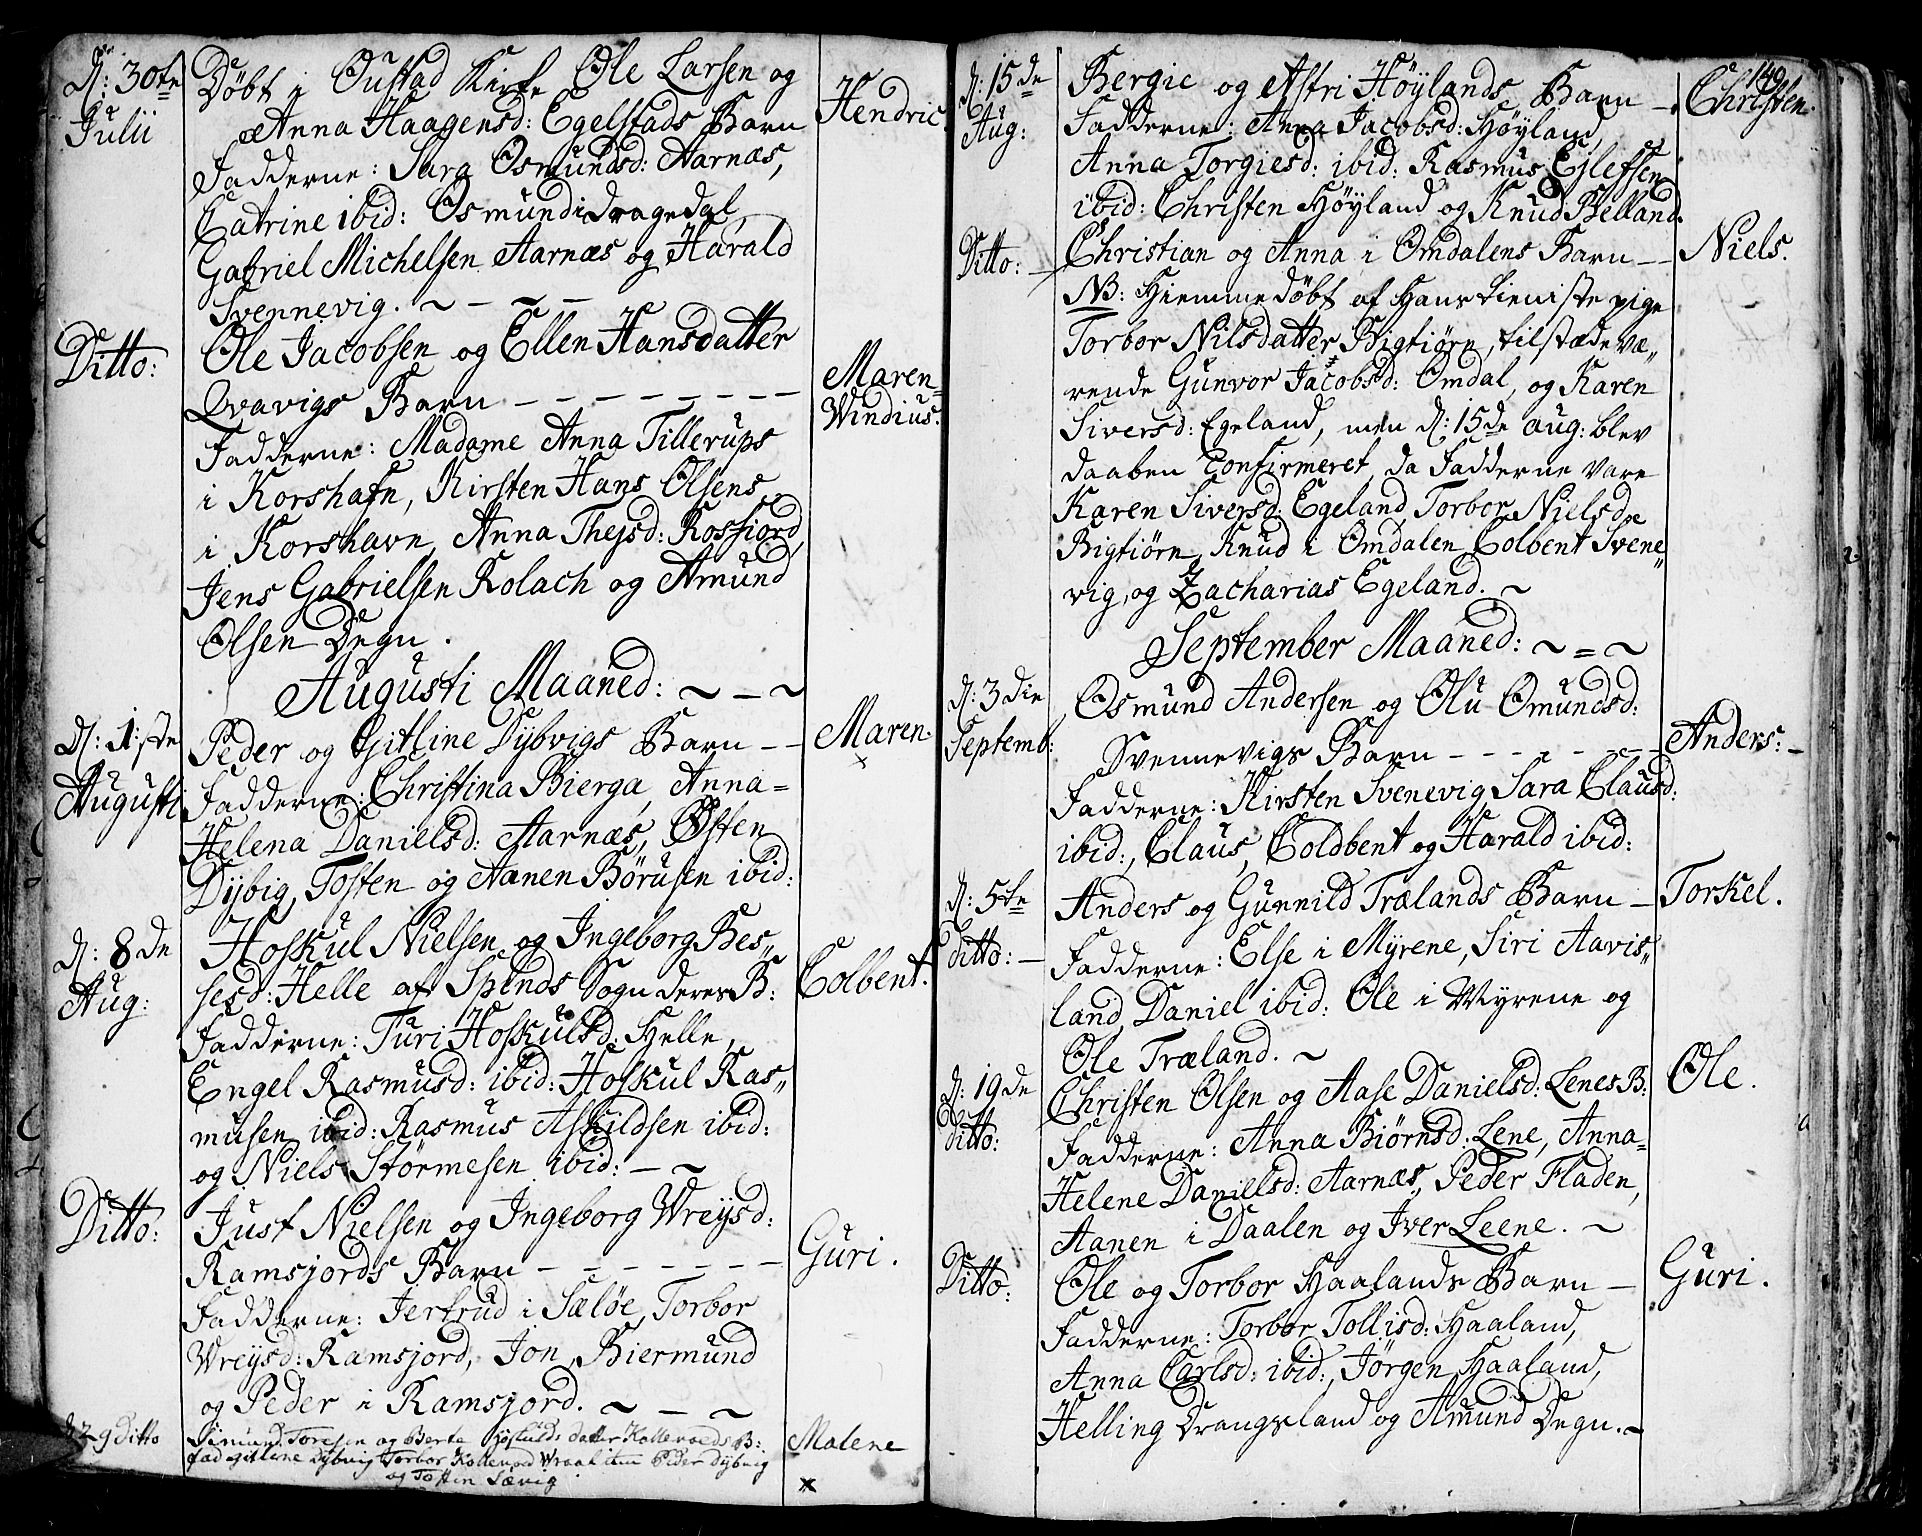 d: 30te Döbt i Oustad Kirke Ole Larsen og
Julii Anna Haagensd: Egelstads Barn Hendric.
Fadderne: Sara Osmundsd: Aarnæs,
Catrine ibid: Osmund i dragedal,
Gabriel Michelsen Aarnæs og Harald
Svennevig. ~ - ~ -
Ditto: Ole Jacobsen og Ellen Hansdatter Maren-
Qvavigs Barn - - - - - - - - Windius.
Fadderne: Madame Anna Tillerups
i Korshafn, Kirsten Hans Olsens
i Korshavn, Anna Thejsd: Rosfiord,
Jens Gabrielsen Rolach og Amund
Olsen Degn.
Augusti Maaned: ~ - ~
d: 1:ste Peder og Gitline Dybvigs Barn - - Maren.
Augusti Fadderne: Christina Bierga, Anna= x
Helena Danielsd: Aarnæs, Østen
Dybig, Tosten og Aanen Börusen ibid:
d: 8de Hoskul Nielsen og Ingeborg Bes„ Colbent.
Aug: sesd: Helle af Spinds Sogn deres B:
Fadderne: Turi Hoskulsd: Helle,
Engel Rasmusd: ibid: Hoskul Ras„
musen ibid: Rasmus Askildsen ibid:
og Niels Störmesen ibid: - ~
Ditto: Just Nielsen og Ingeborg Wreysd: Guri.
Ramsjords Barn - - - - - - -
Fadderne: Jertrud i Sæløe, Torbor
Wreysd: Ramsjord, Jon, Biermund
og Peder i Ramsjord. ~ - ~
d 29 Ditto Simund Toresen og Berte datter Kollevoeds B: Malene
fad gitline Dybvig Torbor Kollevod Wraal item Peder Dybvig
og Tosten Sævig x
149
d: 15de Bergie og Astri Höylands Barn - Christen.
Aug: Fadderne: Anna Jacobsd: Höyland,
Anna Torgiesd: ibid: Rasmus Ejlefsen
ibid: Christen Höyland og Knud Belland.
Ditto: Christian og Anna i Omdalens Barn - - Niels.
NB: Hiemmedöbt af Hans tieniste pige
Torbor Nilsdatter Bigtiörn, tilstæde væ„
rende Gunvor Jacobsd: Omdal, og Karen
Siversd: Egeland, men d: 15de aug: blev
daaben Confirmeret da Fadderne vare
Karen Siversd: Egeland Torbor Nielsd
Bigtiörn, Knud i Omdalen Colbent Svene„
vig, og Zacharias Egeland. ~
September Maaned: ~ = ~
d: 3die Osmund Andersen og Olu Omundsd:
Septemb: Svennevigs Barn - - - - - - Anders: -
Fadderne: Kirsten Svenevig, Sara Clausd:
ibid:, Claus, Coldbent og Harald ibid:
d: 5te Anders og Gunnild Trælands Barn - Torkel.
ditto: - Fadderne: Else i Myrene, Siri Aavis„
land, Daniel ibid: Ole i Myrene og
Ole Træland. ~
d: 19de Christen Olsen og Aase Danielsd: Lenes B: Ole.
ditto: Fadderne: Anna Biörnsd: Lene, Anna-
Helene Danielsd: Aarnæs, Peder Fladen,
Aanen i Daalen og Iver Leene. ~
Ditto: Ole og Torbor Haalands Barn - Guri.
Fadderne: Torbor Tollisd: Haaland,
Anna Carlsd: ibid:, Jörgen Haaland,
Helling Drangsland og Amund Degn. ~